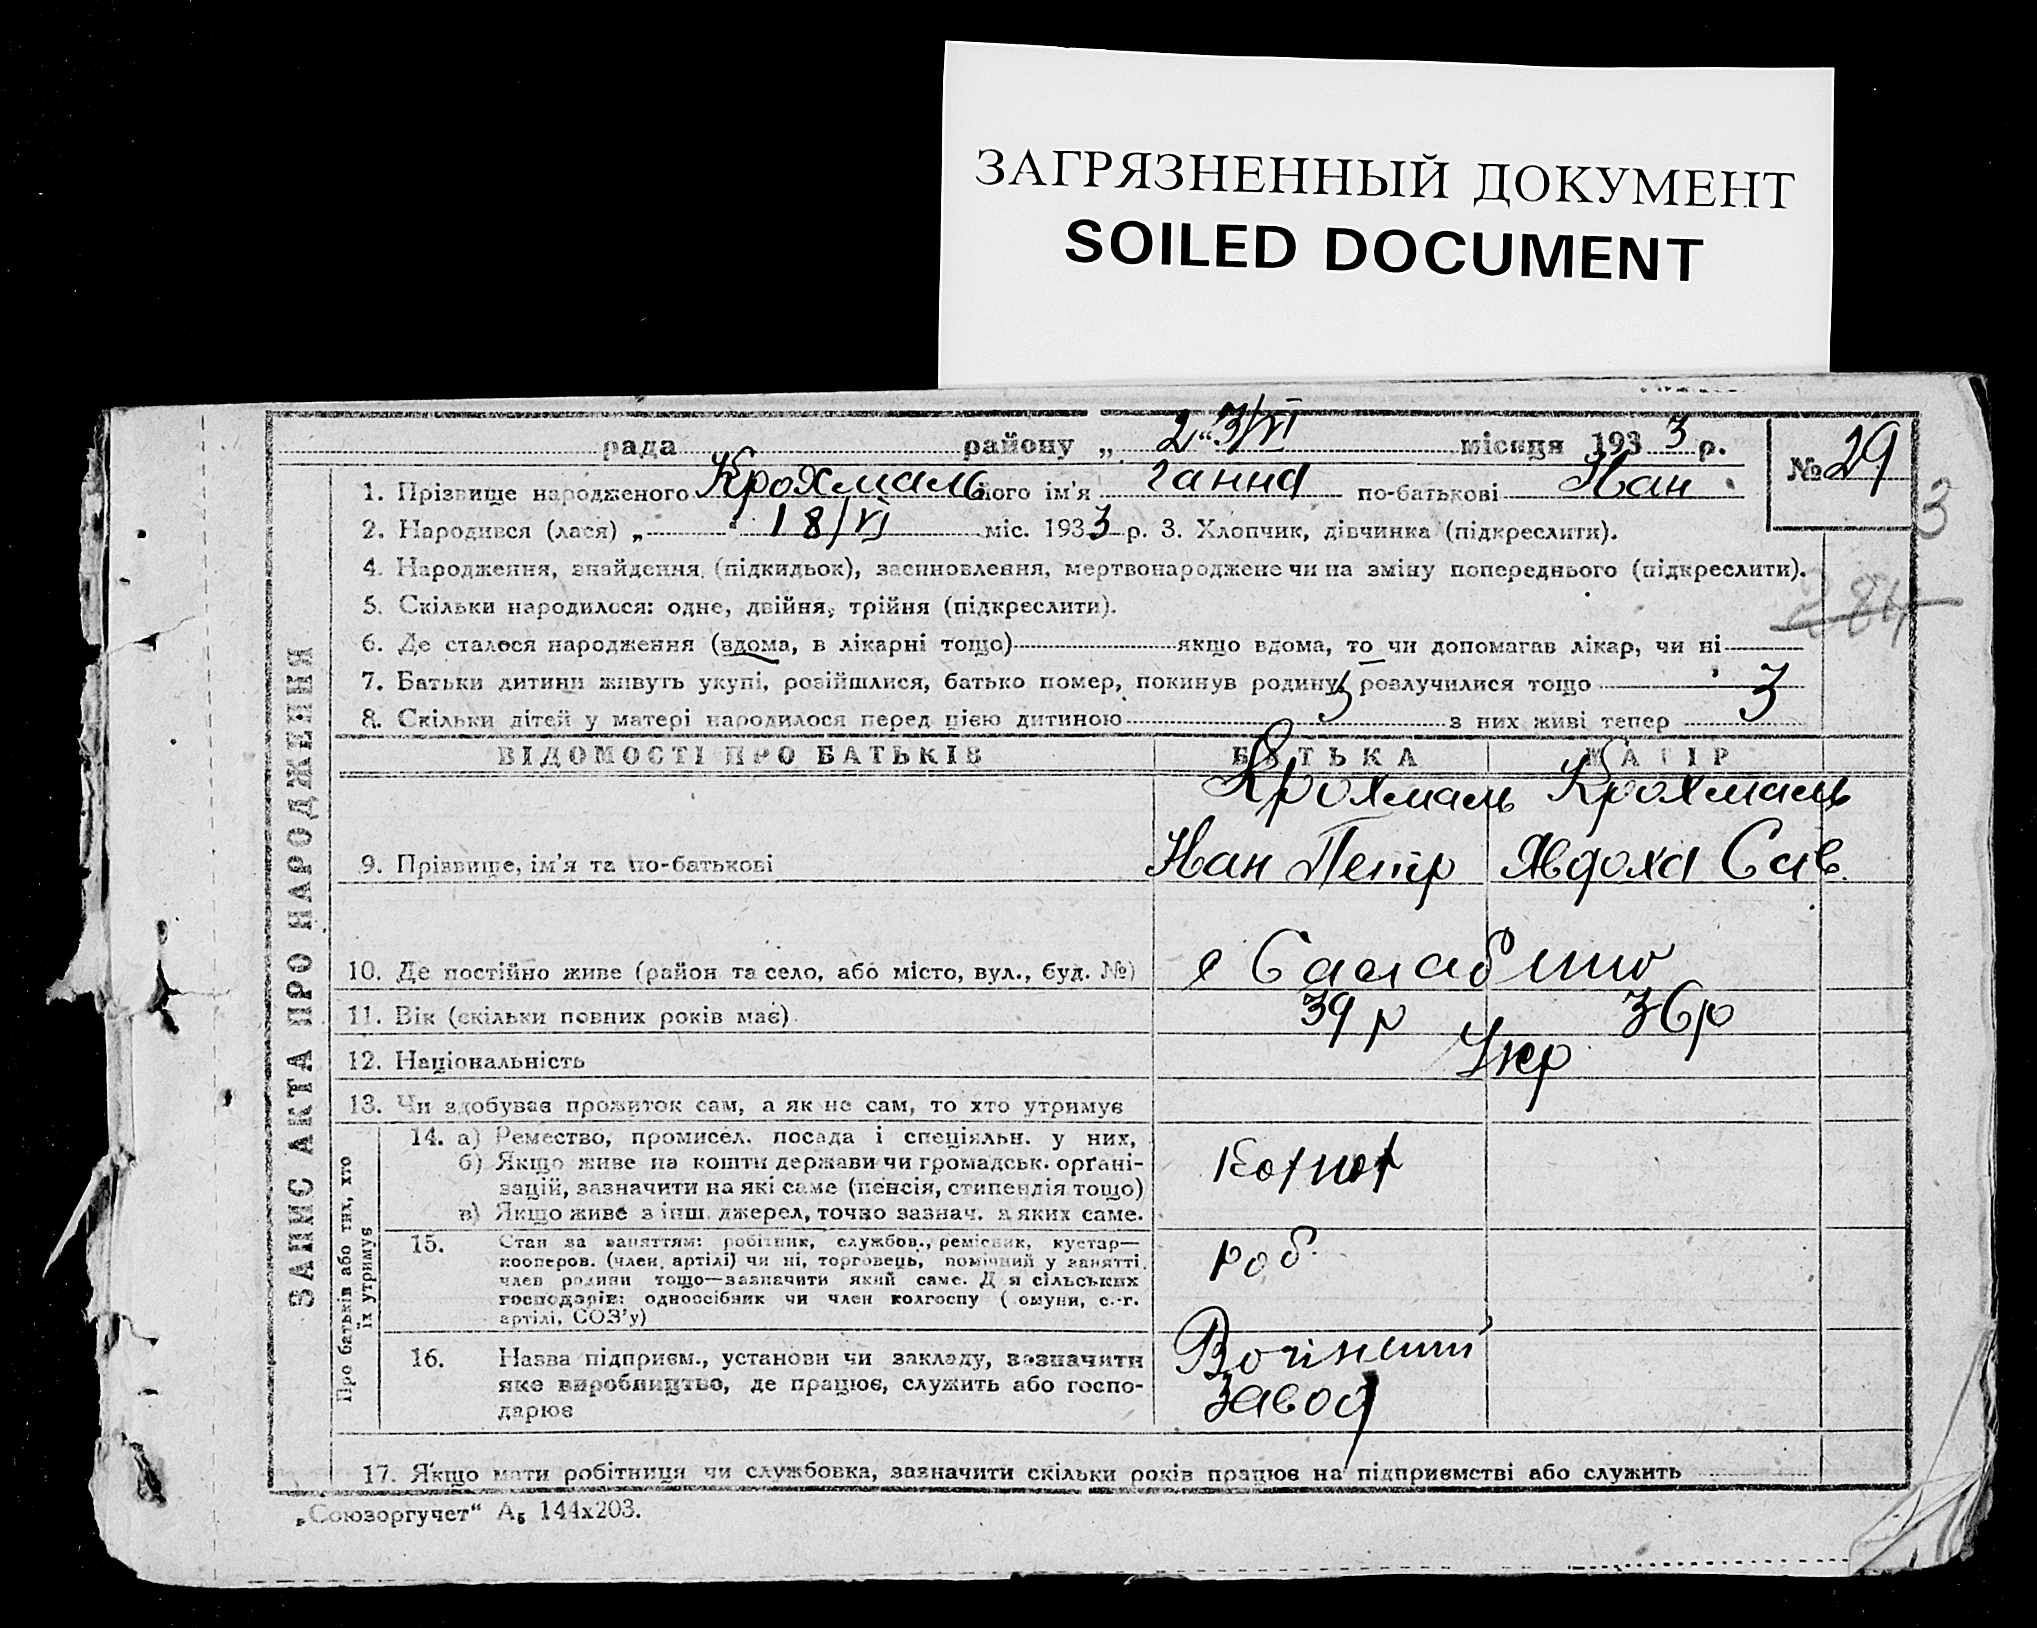 ЗАГРЯЗНЕННЫЙ ДОКУМЕНТ
SOILED DOCUMENT
рада району „ 23/VI місяця 1933 р.
№ 29
3
284
1. Прізвище народженого Крохмаль його ім'я Ганна по-батькові Иван.
2. Народився (лася) „ “ 18/VI міс. 1933 р. 3. Хлопчик, дівчинка (підкреслити).
4. Народження, знайдення (підкидьок), засиновлення, мертвонароджене чи на зміну попереднього (підкреслити).
5. Скільки народилося: одне, двійня, трійня (підкреслити).
6. Де сталося народження (вдома, в лікарні тощо) якщо вдома, то чи допомагав лікар, чи ні
7. Батьки дитини живуть укупі, розійшлися, батько помер, покинув родину, розлучилися тощо
8. Скільки дітей у матері народилося перед цією дитиною 5 з них живі тепер 3
ЗАПИС АКТА ПРО НАРОДЖЕННЯ
ВІДОМОСТІ ПРО БАТЬКІВ БАТЬКА МАТІР
Крохмаль Крохмаль
9. Прізвище, ім'я та по-батькові Иван Петр Явдоха Сав.
10. Де постійно живе (район та село, або місто, вул., буд. №) с
11. Вік (скільки повних років має) 39 р 36 р
12. Національність Укр
13. Чи здобував прожиток сам, а як не сам, то хто утримує
Про батьків або тих, хто їх утримує
14. а) Ремество, промисел. посада і спеціяльн. у них,
б) Якщо живе на кошти держави чи громадськ. органі-
зацій, зазначити на які саме (пенсія, стипендія тощо)
в) Якщо живе з інш. джерел, точно зазнач. з яких саме.
15. Стан за заняттям: робітник, службов., ремісник, кустар—
кооперов. (член артілі) чи ні, торговець, помічний у занятті
член родини тощо—зазначити який саме. Для сільських
господарів: одноосібник чи член колгоспу (комуни, с.-г.
артілі, СОЗ'у)
роб.
16. Назва підприєм., установи чи закладу, зазначити
яке виробництво, де працює, служить або госпо-
дарює
завод
17. Якщо мати робітниця чи службовка, зазначити скільки років працює на підприємстві або служить
„Союзоргучет“ А5 144х203.